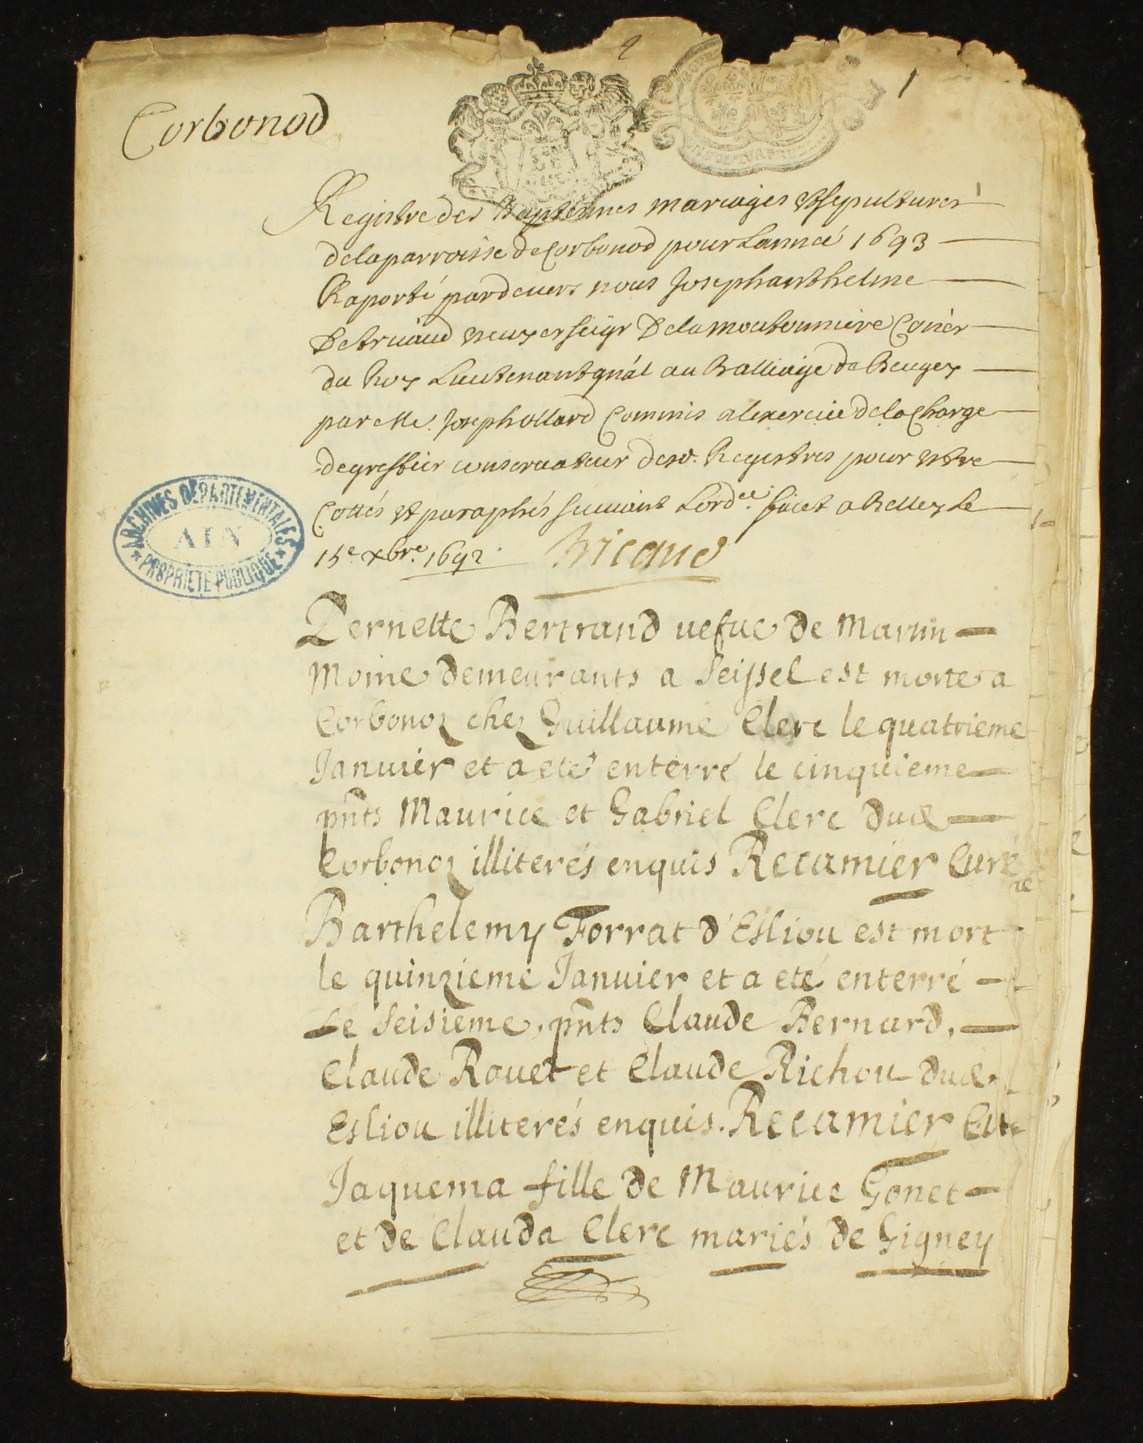 1
Corbonod
Registre des Baptesmes mariages et sepultures
de la parroisse de Corbonod pour Lannée 1693
Raporté pardevers nous Joseph anthelme
du Roy Lieutenant gnãl au Balliage de Beugey
par Me. Joseph ollard Commis a lexercice de la Charge
de greffier conservateur desd. Registres pour estre
Cottés et paraphés suivant Lord.ce faict a Belley Le
15e xbre. 1692.
ARCHIVES DÉPARTEMENTALES
AIN
* PROPRIÉTÉ PUBLIQUE *
Pernette Bertrand uefue de Martin
Moine demeurants a Seissel est morte a
Corbonoz chez Guillaume Clerc le quatrieme
Januier et a eté enterré le cinquieme
pñts Maurice et Gabriel Clerc dud
Corbonoz illiterés enquis Recamier Curé
Barthelemy Forrat d'Esliou est mort
le quinzieme Januier et a eté enterré
Le Seisieme, pñts Claude Bernard,
Claude Rouet et Claude Richou dud.
Esliou illiterés enquis. Recamier Cu
Jaquema fille de Maurice Gonet
et de Clauda Clerc mariés de Gigney